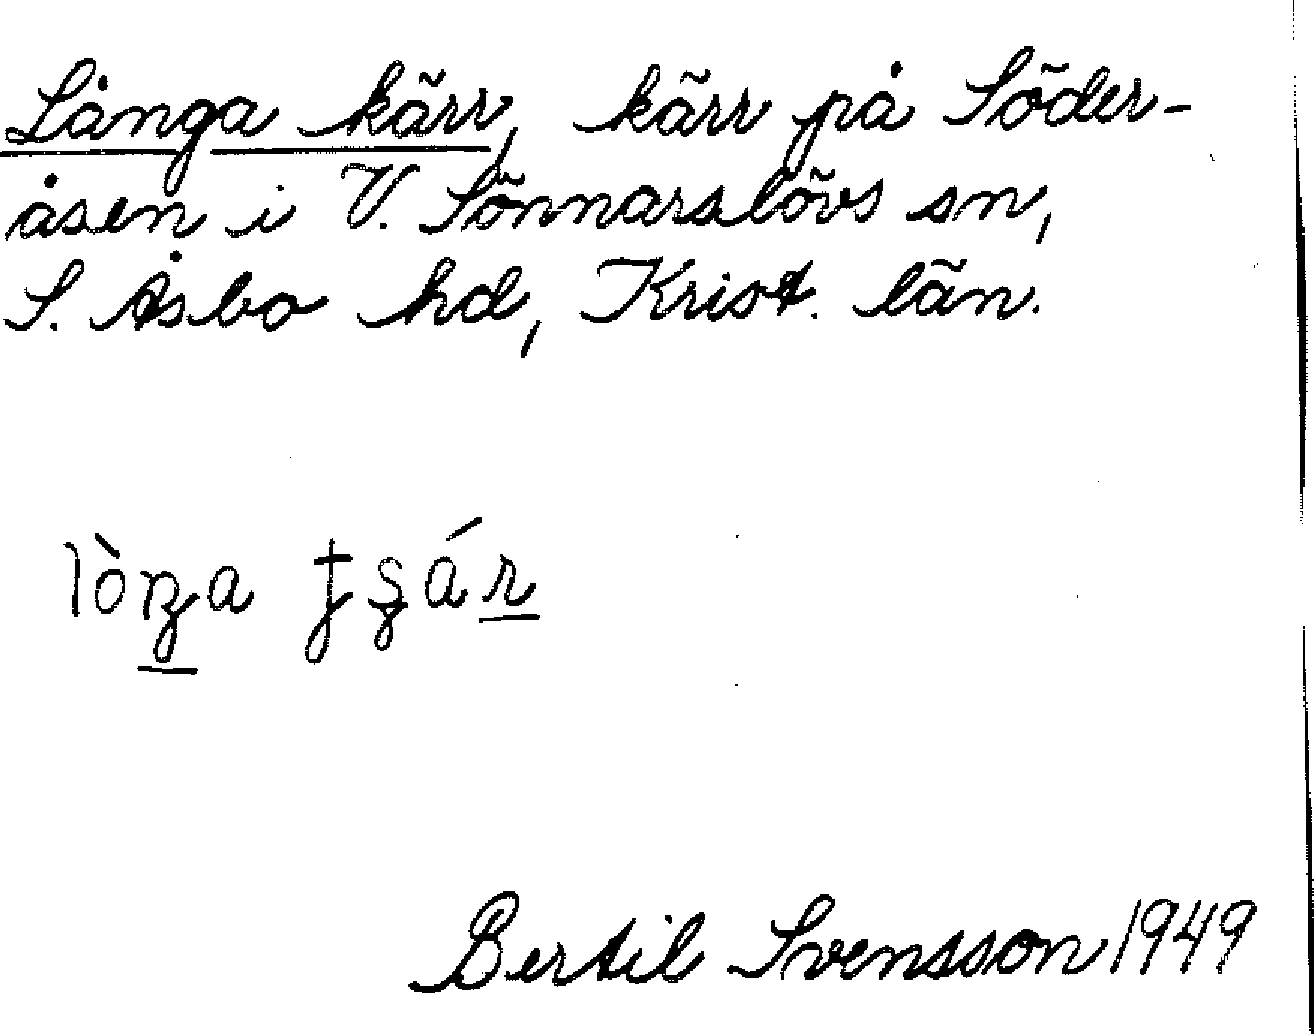 Långa kärr, kärr på Söder-
åsen i V. Sönnarslövs sn,
S. Åsbo hd, Krist. län.
Bertil Svensson 1949